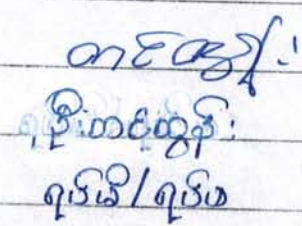 တင်ထွန်း
ဦးတင်ထွန်း
ရပ်မိ/ရပ်ဖ